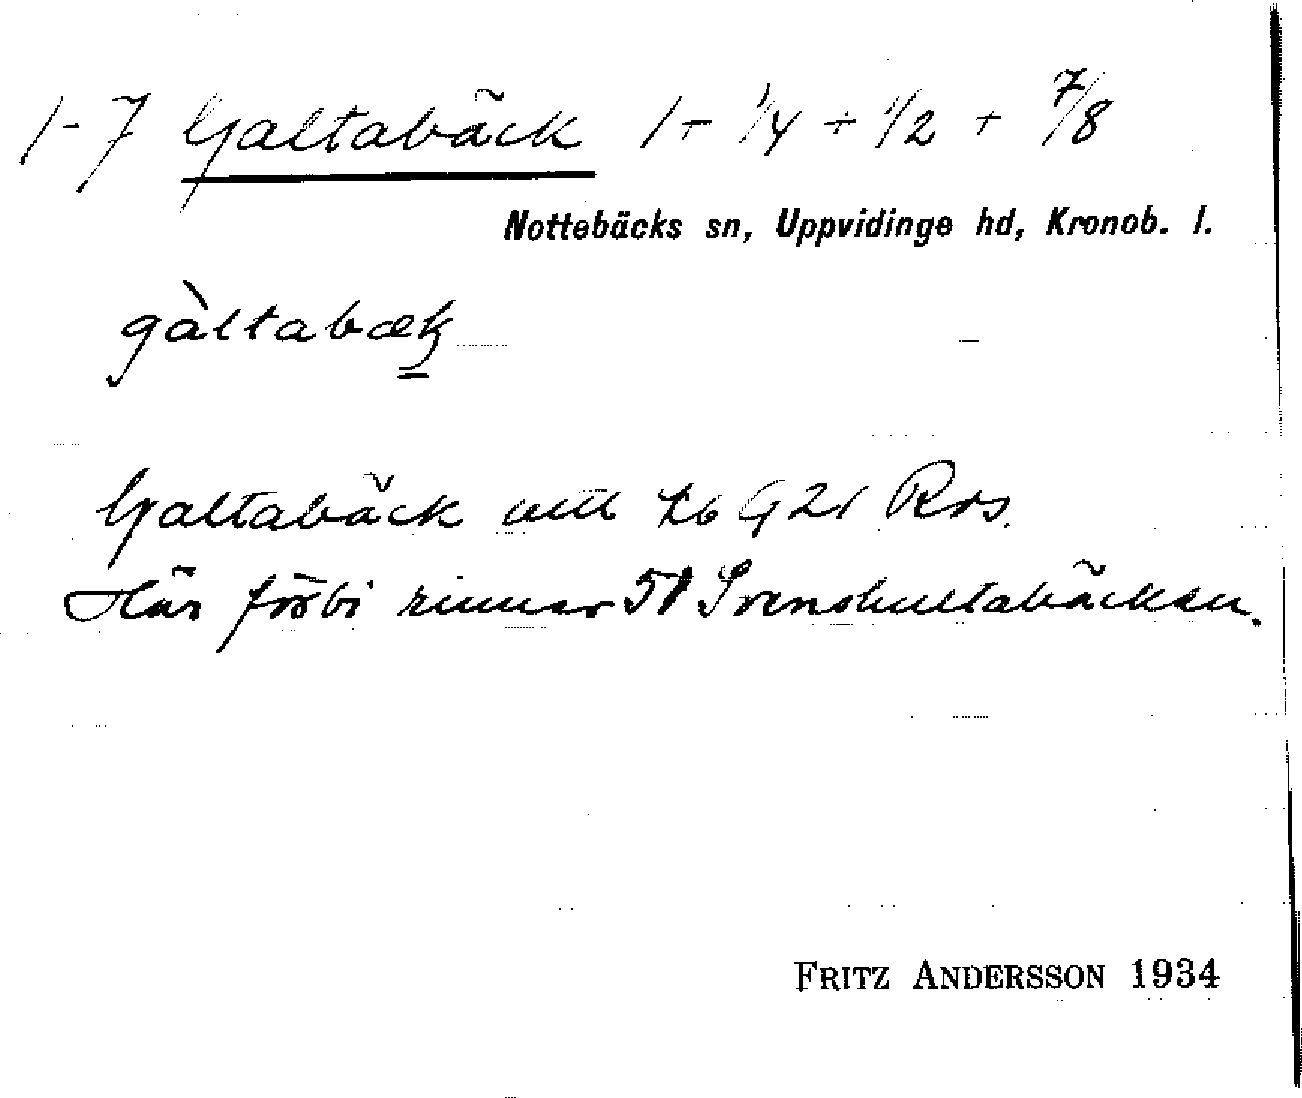 1-7 Galtabäck 1 + 1/4 + 1/2 + 7/8
Nottebäcks sn, Uppvidinge hd, Kronob. l.
gàltabæk
Galtabäck utt Lb G 21 Ros.
Här förbi rinner 51 Svenshultabäcken.
FRITZ ANDERSSON 1934